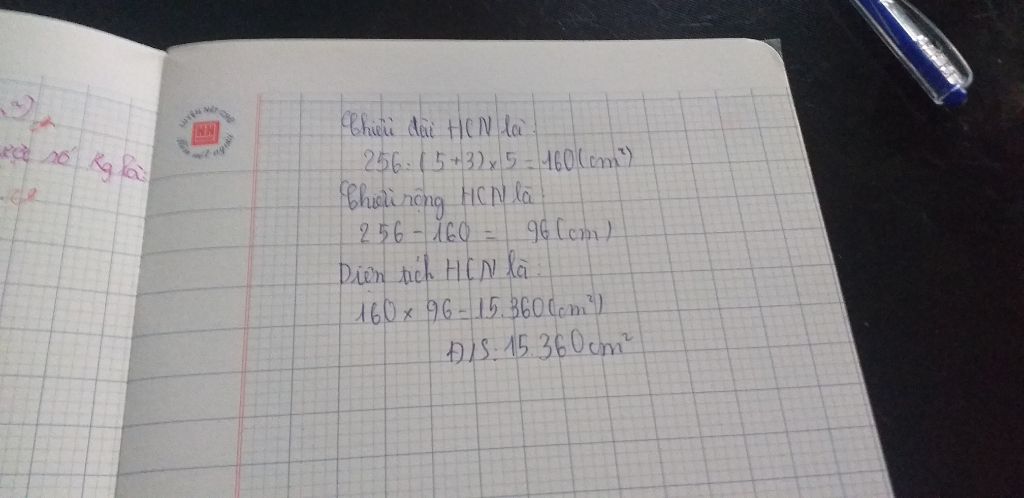 số kg là:
Chiều dài HCN là:
256 : (5+3) x 5 = 160 (cm²)
Chiều rộng HCN là
256 - 160 = 96 (cm)
Diện tích HCN là:
160 x 96 = 15.360 (cm²)
Đ/S: 15.360 cm²